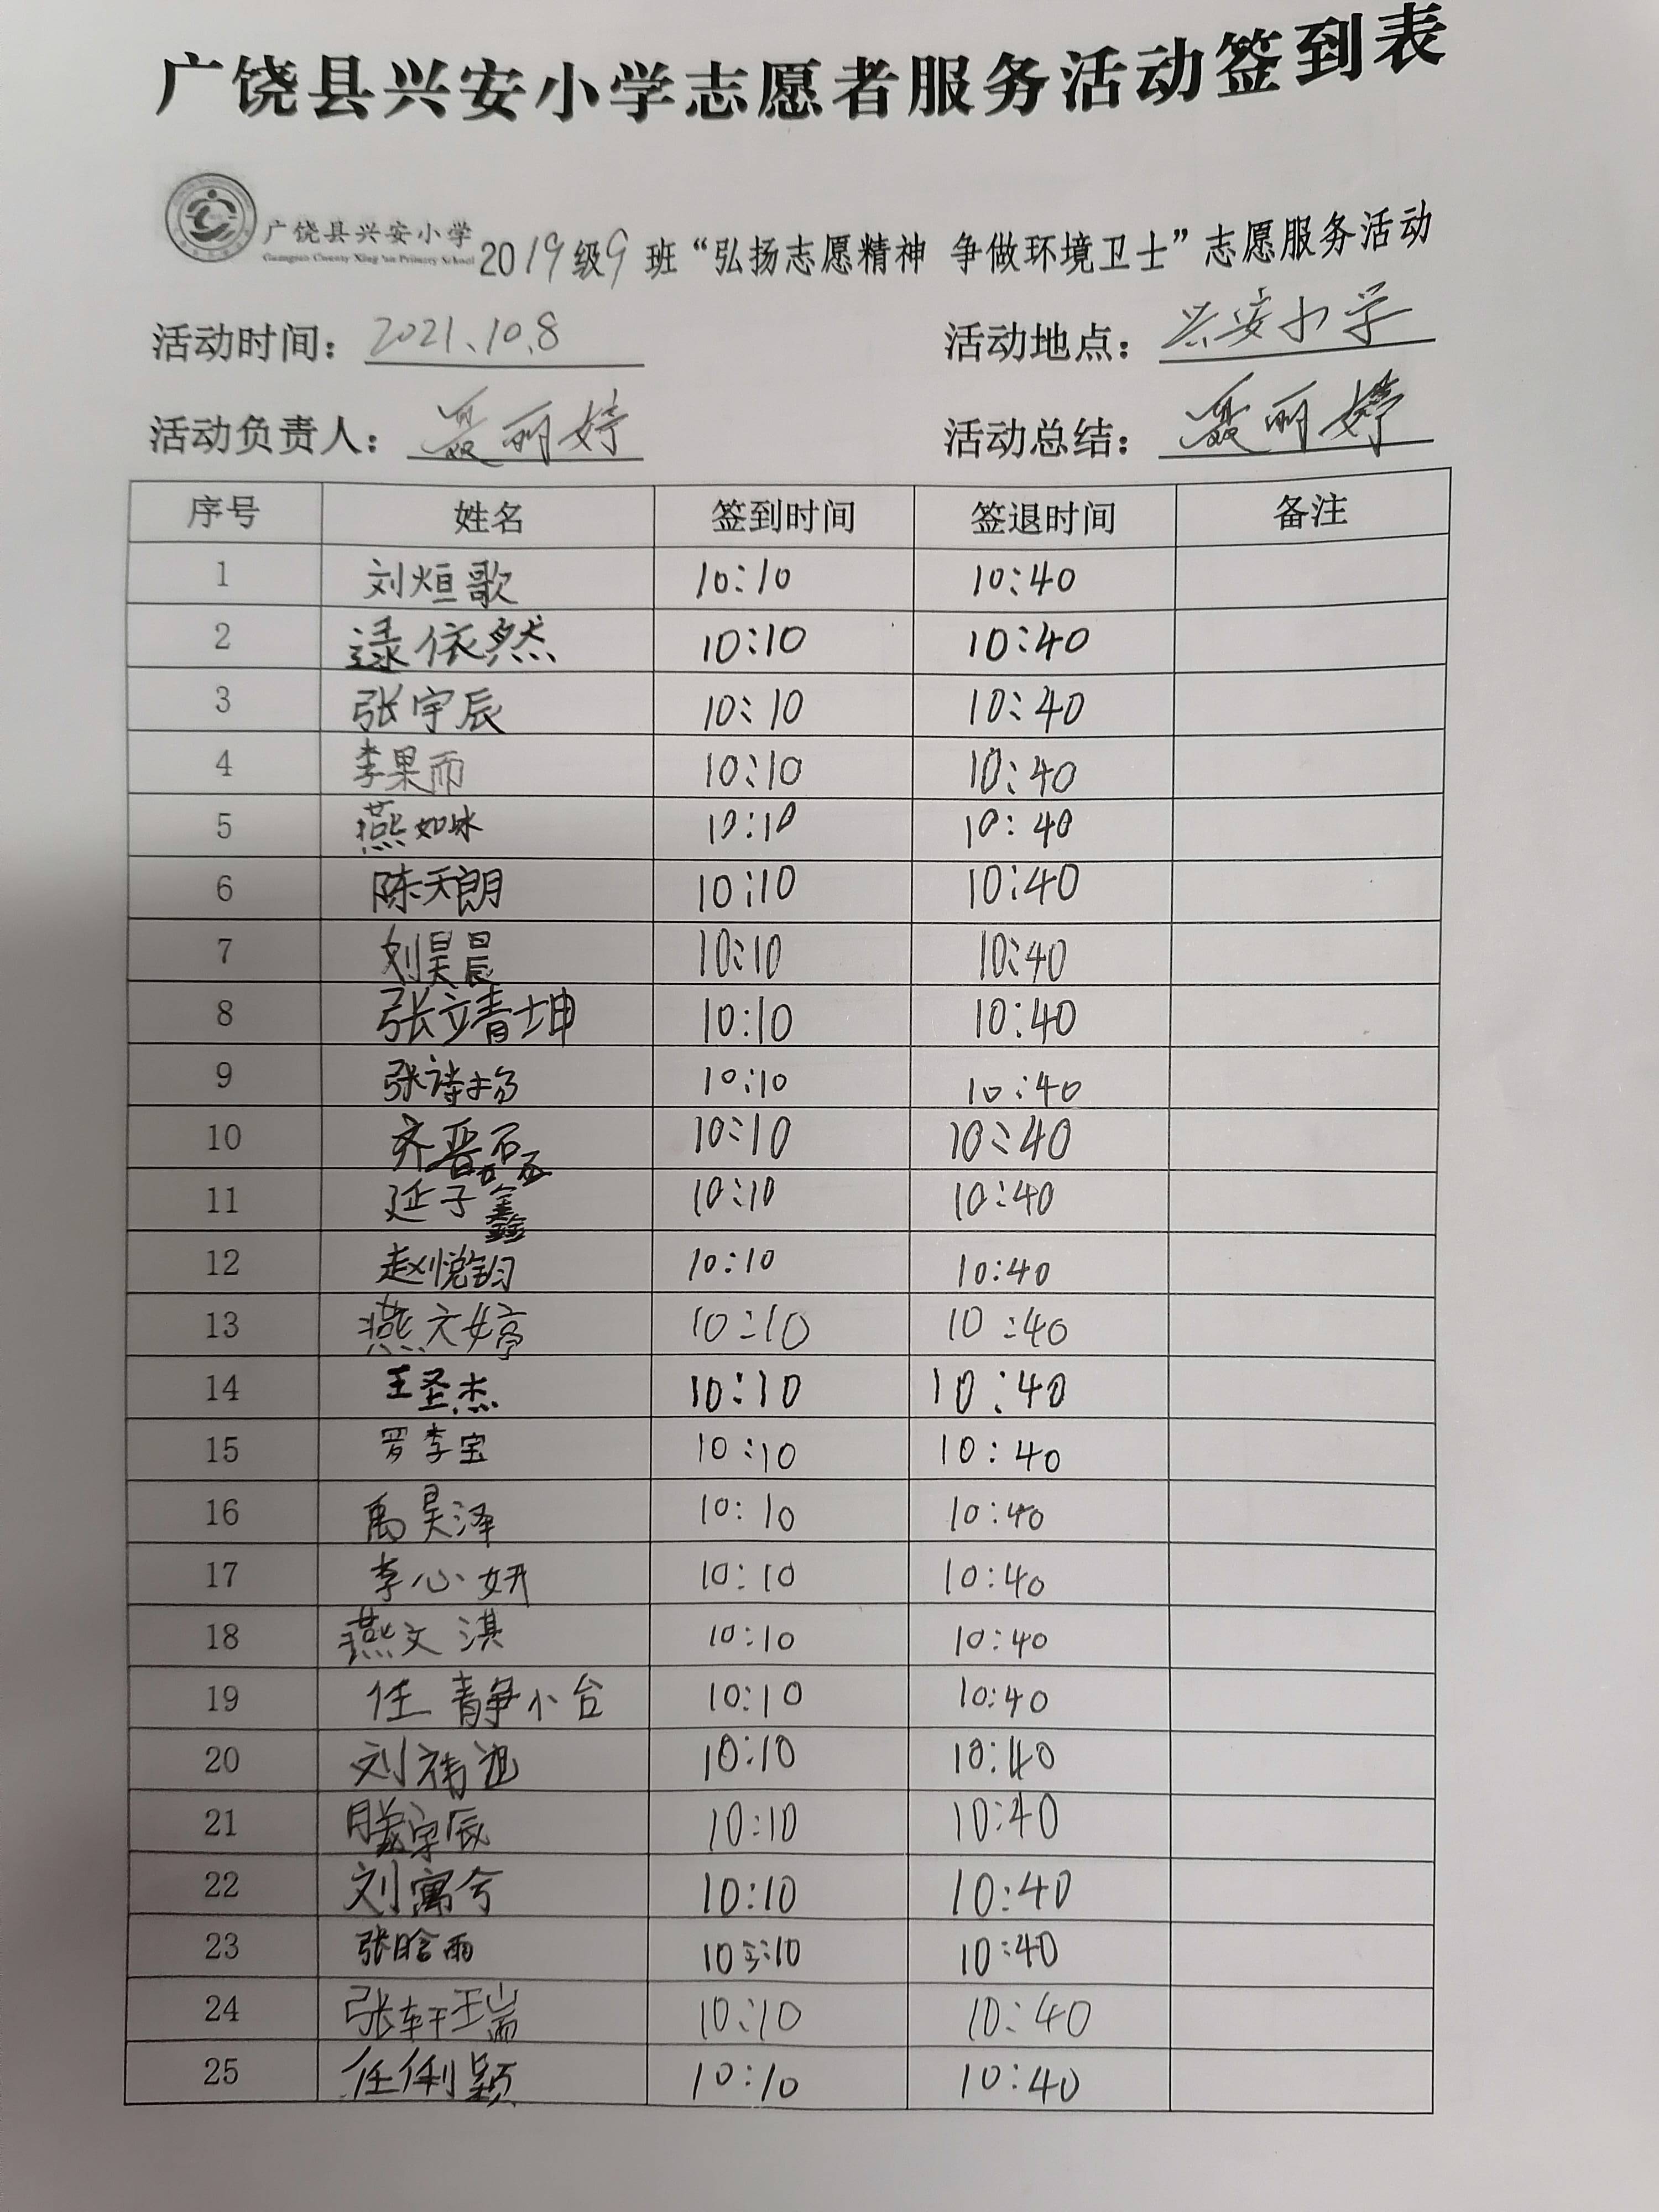 广饶县兴安小学志愿者服务活动签到表
广饶县兴安小学
Guangrao County Xing'an Primary School
2019级9班“弘扬志愿精神 争做环境卫士”志愿服务活动
活动时间：2021.10.8 活动地点：兴安小学
活动负责人：聂丽婷 活动总结：聂丽婷
序号 姓名 签到时间 签退时间 备注
1 刘烜歌 10:10 10:40
2 逯依然 10:10 10:40
3 张宇辰 10:10 10:40
4 李果而 10:10 10:40
5 燕如冰 10:10 10:40
6 陈天朗 10:10 10:40
7 刘昊晨 10:10 10:40
8 张靖坤 10:10 10:40
9 张诗扬 10:10 10:40
10 齐晋磊 10:10 10:40
11 延子鑫 10:10 10:40
12 赵悦钧 10:10 10:40
13 燕文婷 10:10 10:40
14 王圣杰 10:10 10:40
15 罗李宝 10:10 10:40
16 禹昊泽 10:10 10:40
17 李心妍 10:10 10:40
18 燕文淇 10:10 10:40
19 任静怡 10:10 10:40
20 刘 10:10 10:40
21 滕宇辰 10:10 10:40
22 刘寓兮 10:10 10:40
23 张晗雨 10:10 10:40
24 张轩瑞 10:10 10:40
25 任俐颖 10:10 10:40